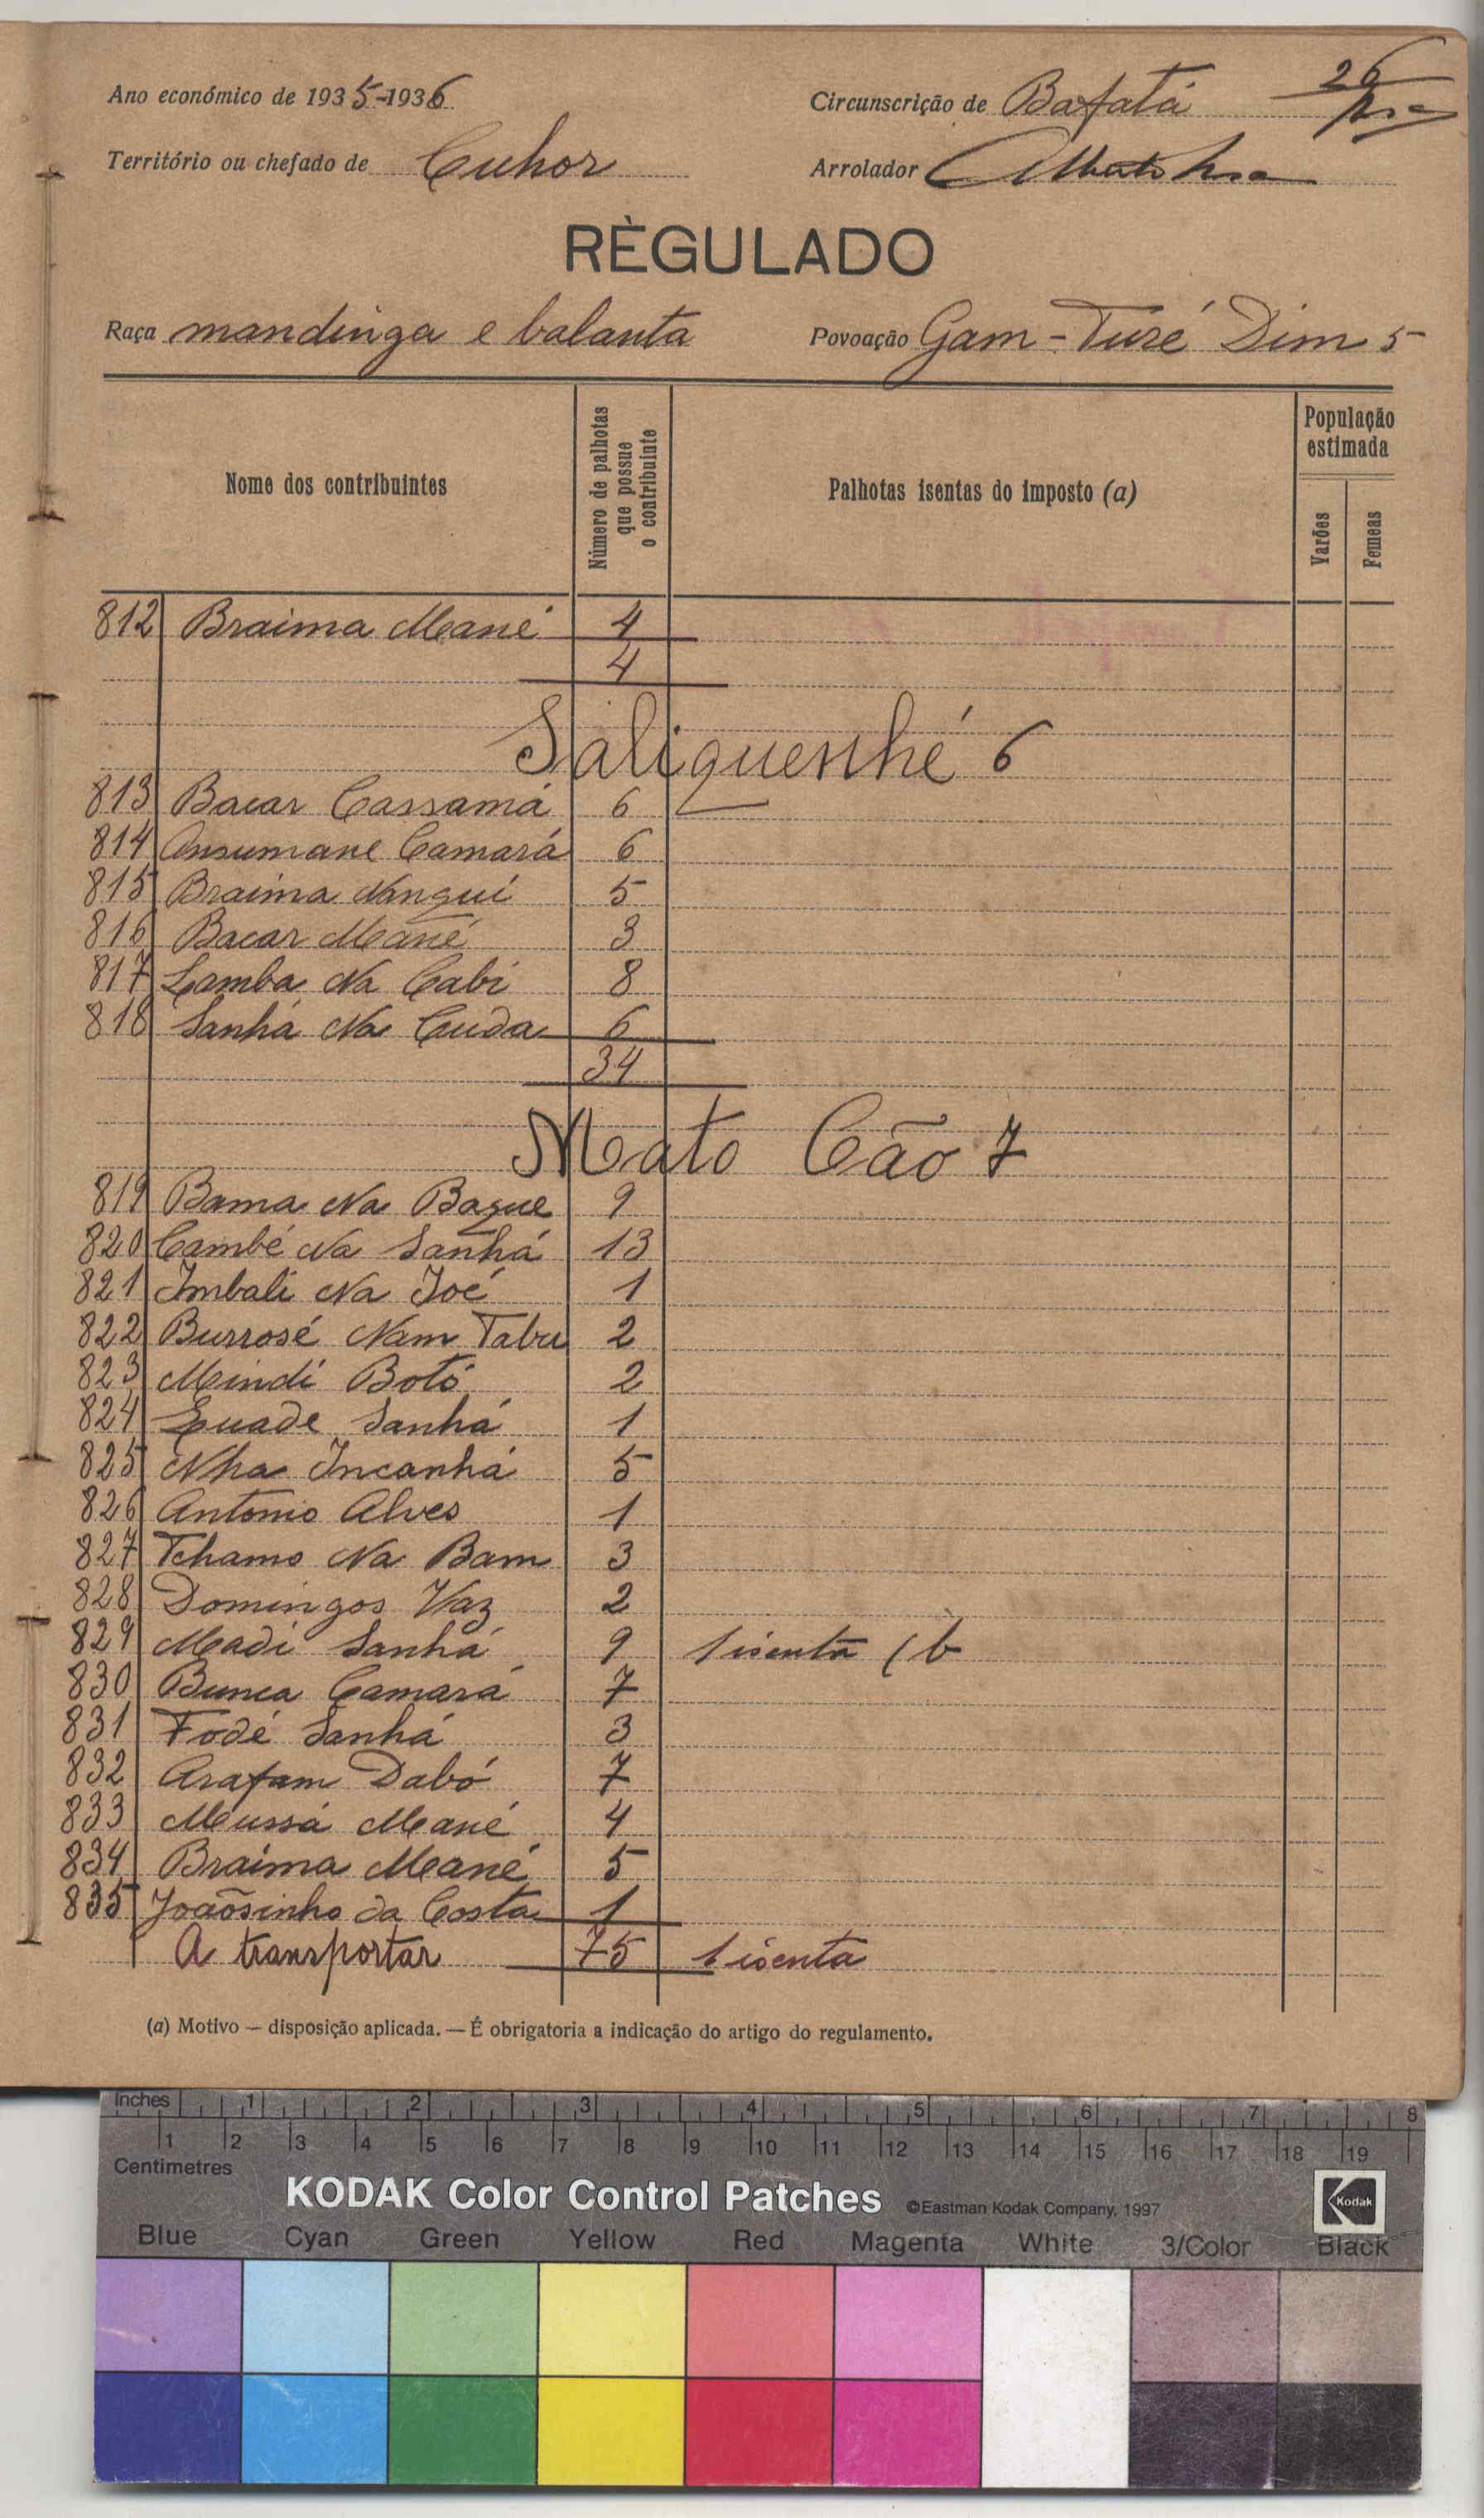 Ano económico de 1935-1936
Circunscrição de Bafatá 26
Território ou chefado de Cuhor
Arrolador Alberto
RÈGULADO
Raça mandinga e balanta
Povoação Gam-Turé Dim 5
Nome dos contribuintes
Número de palhotas que possue o contribuinte
Palhotas isentas do imposto (a)
População estimada
Varões
Femeas
812 Braima Mané 4
4
Saliquenhé 6
813 Bacar Cassamá 6
814 Ansumane Camará 6
815 Braima Nanqui 5
816 Bacar Mané 3
817 Lamba Na Cabi 8
818 Sanhá Na Cuda 6
34
Mato Cão 7
819 Bama Na Bague 9
820 Cambé Na Sanhá 13
821 Imbali Na Joé 1
822 Burrosé Nam Tabu 2
823 Mindi Botó 2
824 Quade Sanhá 1
825 Nha Incanhá 5
826 Antonio Alves 1
827 Tchamo Na Bam 3
828 Domingos Vaz 2
829 Madi Sanhá 9 1 isenta (b
830 Bunca Camará 7
831 Fodé Sanhá 3
832 Arafam Dabó 7
833 Mussá Mané 4
834 Braima Mané 5
835 Joãosinho da Costa 1
A transportar 75 1 isenta
(a) Motivo — disposição aplicada. — É obrigatoria a indicação do artigo do regulamento.
Inches 1 2 3 4 5 6 7 8
1 2 3 4 5 6 7 8 9 10 11 12 13 14 15 16 17 18 19
Centimetres
KODAK Color Control Patches ©Eastman Kodak Company, 1997 Kodak
Blue Cyan Green Yellow Red Magenta White 3/Color Black